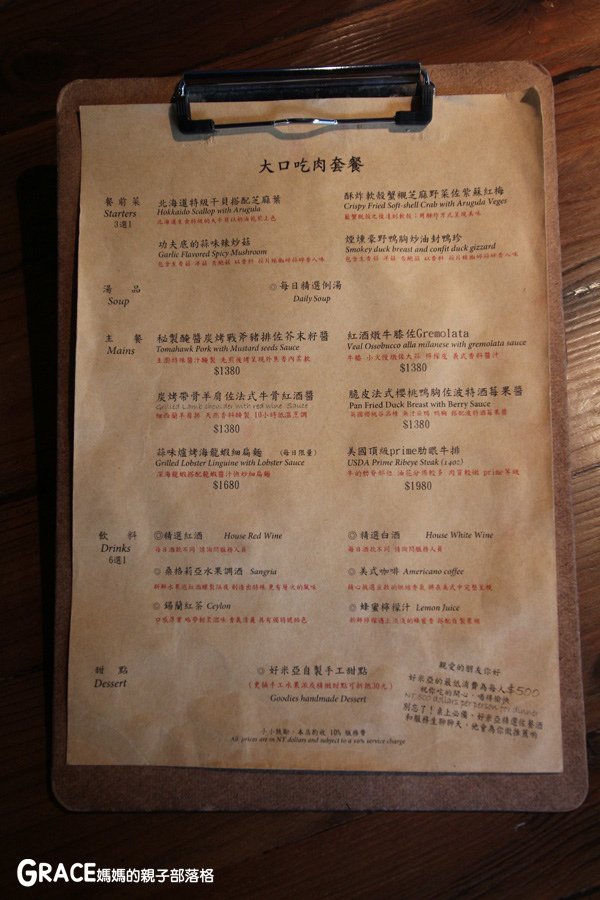 大口吃肉套餐
餐前菜
Starters
3選1
北海道特級干貝搭配芝麻葉
Hokkaido Scallop with Arugula
酥炸軟殼蟹襯芝麻野菜佐紫蘇紅梅
Crispy Fried Soft-shell Crab with Arugula Veges
功夫底的蒜味辣炒菇
Garlic Flavored Spicy Mushroom
煙燻豪野鴨胸炒油封鴨珍
Smokey duck breast and confit duck gizzard
湯品
Soup
◎每日精選例湯
Daily Soup
主餐
Mains
秘製醃醬炭烤戰斧豬排佐芥末籽醬
Tomahawk Pork with Mustard seeds Sauce
$1380
紅酒燉牛膝佐Gremolata
Veal Ossobucco alla milanese with gremolata sauce
$1380
炭烤帶骨羊肩佐法式牛骨紅酒醬
Grilled Lamb shoulder with red wine Sauce
$1380
脆皮法式櫻桃鴨胸佐波特酒莓果醬
Pan Fried Duck Breast with Berry Sauce
$1380
蒜味爐烤海龍蝦細扁麵 (每日限量)
Grilled Lobster Linguine with Lobster Sauce
深海龍蝦搭配龍蝦醬汁快炒細扁麵
$1680
美國頂級prime肋眼牛排
USDA Prime Ribeye Steak (14oz)
$1980
飲料
Drinks
6選1
◎精選紅酒 House Red Wine
每日酒款不同 請詢問服務人員
◎精選白酒 House White Wine
每日酒款不同 請詢問服務人員
◎桑格莉亞水果調酒 Sangria
◎美式咖啡 Americano coffee
◎錫蘭紅茶 Ceylon
◎蜂蜜檸檬汁 Lemon Juice
甜點
Dessert
◎好米亞自製手工甜點
(更換手工水果冰炭精緻甜點可折抵30元)
Goodies handmade Dessert
親愛的朋友你好
好米亞的最低消費為每人$500
祝你吃的開心、喝得愉快
NT 500 dollars per person for dinner
別忘了!桌上必備、好米亞精選佐餐酒
和服務生聊聊天,他會為你做推薦的
小小提醒,本店酌收 10% 服務費
All prices are in NT dollars and subject to a 10% service charge
GRACE媽媽的親子部落格